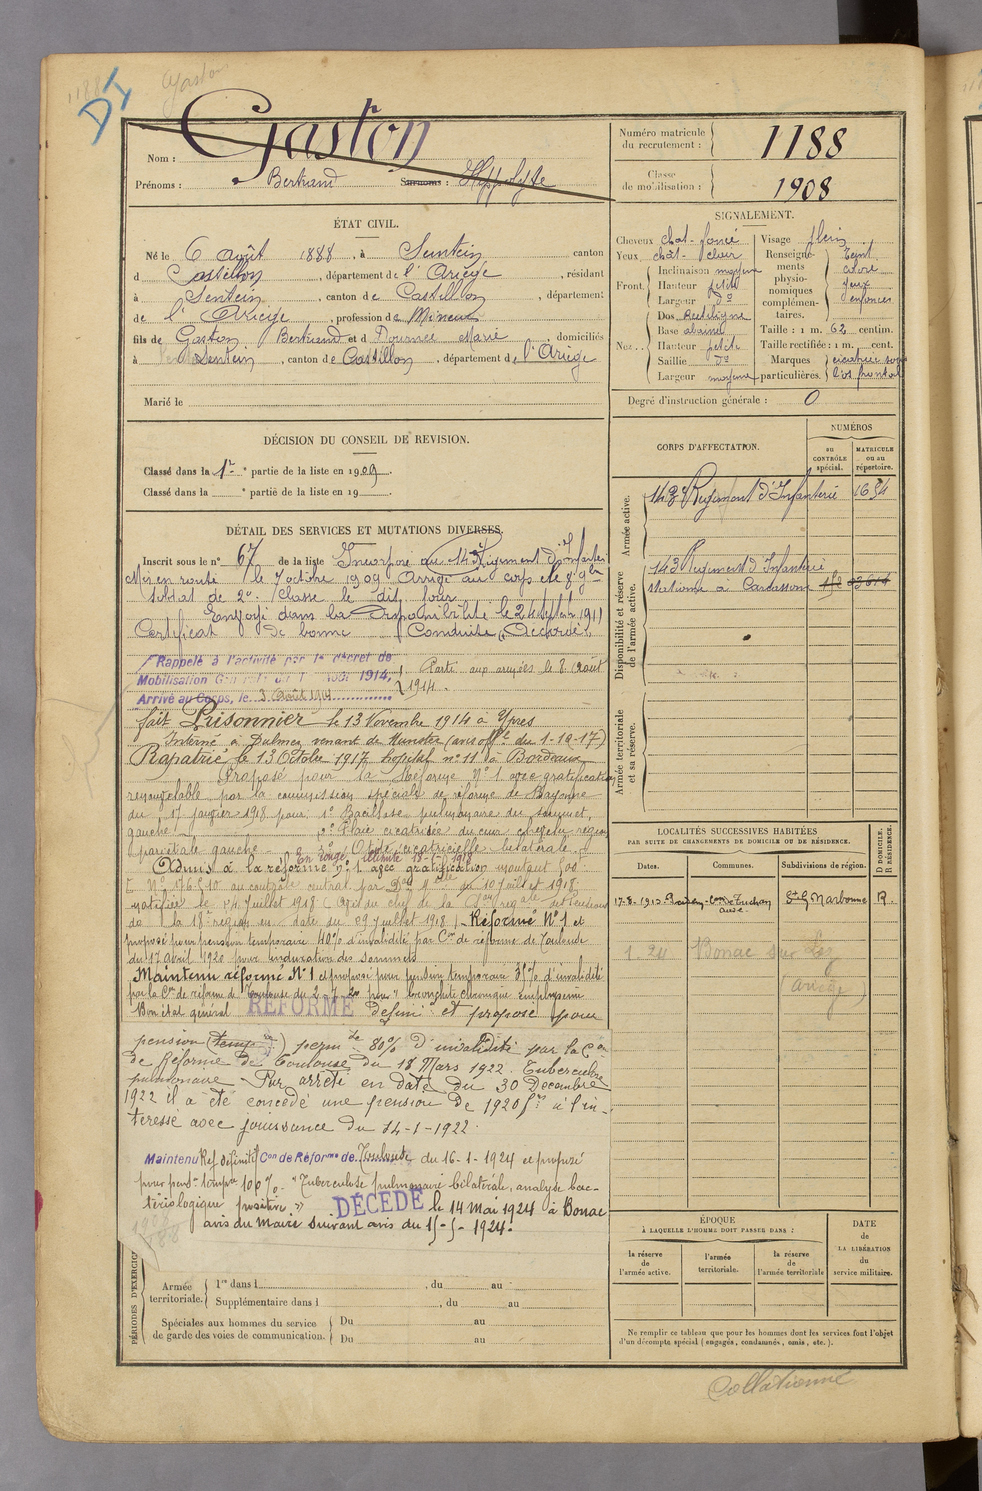 1188
Gaston
DI
Nom : Gaston
Prénoms : Bertrand Surnoms : Hippolyte
Numéro matricule du recrutement : 1188
Classe de mobilisation : 1908
ÉTAT CIVIL.
Né le 6 août 1888, à Sentein canton
d Castillon, département de l'Ariège, résidant
à Sentein, canton de Castillon, département
de l'Ariège, profession de Mineur
fils de Gaston Bertrand et d Marie domiciliés
à Sentein, canton de Castillon, département de l'Ariège
Marié le
SIGNALEMENT.
Cheveux chat-foncé
Yeux chât-clair
Front. Inclinaison moyenne
Hauteur petite
Largeur do
Nez. Dos Rectiligne
Base abaissé
Hauteur petite
Saillie do
Largeur moyenne
Visage plein
Renseignements physionomiques complémentaires. Teint cuivré yeux enfoncés
Taille : 1 m. 62 centim.
Taille rectifiée : 1 m. cent.
Marques particulières. cicatrice sous l'os frontal
Degré d'instruction générale : 0
DÉCISION DU CONSEIL DE REVISION.
Classé dans la 1re partie de la liste en 1909.
Classé dans la e partie de la liste en 19 .
DÉTAIL DES SERVICES ET MUTATIONS DIVERSES.
Inscrit sous le no 67 de la liste Incorporé au 143 Régiment d'Infanterie
Mis en route le 7 octobre 1909 Arrivé au corps et
soldat de 2e classe le dit jour
Envoyé dans la disponibilité le 24 septembre 1911
Certificat de bonne Conduite "Accordé"
Rappelé à l'activité par le décret de
Mobilisation Générale du 1 août 1914,
Arrivé au Corps, le 3 Août 1914
Parti aux armées le 8 août
1914.
fait Prisonnier le 13 Novembre 1914 à Ypres
Interné à venant de Munster (avis off. du 1-10-17)
Rapatrié le 13 Octobre 1917 hopital no 11 à Bordeaux
Proposé pour la Réforme No 1 avec gratification
renouvelable par la commission spéciale de réforme de Bayonne
du 17 janvier 1918 pour 1o Bacillose pulmonaire du sommet
gauche 2o Plaie cicatrisée du région
pariétale gauche 3o Otite cicatricielle bilatérale
Admis à la réforme no 1 avec gratification montant
No 176.510 au contrôle central par Don Mlle du 10 Juillet 1918
notifiée le 14 Juillet 1918
de la 18e région en date du 09 Juillet 1918 Réformé No 1 et
proposé pour pension temporaire 40% d'invalidité par Con de réforme de Toulouse
du 17 Avril 1920 pour induration des sommets
Maintenu réformé No 1 et proposé pour pension temporaire 35% d'invalidité
par la Con de réforme de Toulouse du 2-7-20 pour "bronchite chronique emphysème
Bon état général RÉFORMÉ défini et proposé pour
pension (temp) perm te 80% d'invalidité par la Con
de Réforme de Toulouse du 18 Mars 1922. Tuberculose
pulmonaire. Par arrêté en date du 30 Décembre
1922 il a été concédé une pension de 1920 frs à l'in-
téressé avec jouissance du 14-1-1922.
Maintenu Réf définitif Con de Réforme de Toulouse du 16-1-1924 et proposé
pour pens. temp. 100%. "Tuberculose pulmonaire bilatérale, analyse bac-
tériologique positive"
DÉCÉDÉ le 14 Mai 1924 à Bonac
avis du Maire suivant avis du 15-5-1924.
1908
1188
CORPS D'AFFECTATION.
NUMÉROS
au CONTRÔLE spécial.
MATRICULE ou au répertoire.
Armée active.
143e Régiment d'Infanterie 1654
Disponibilité et réserve de l'armée active.
143 Régiment d'Infanterie
stationné à Carcassonne
Armée territoriale et sa réserve.
LOCALITÉS SUCCESSIVES HABITÉES
PAR SUITE DE CHANGEMENTS DE DOMICILE OU DE RÉSIDENCE.
Dates. Communes. Subdivisions de région. D DOMICILE. R RÉSIDENCE.
17-8-1913 con de Tuchan Aude Narbonne R.
1.24 Bonac sur Lez
(Ariège)
ÉPOQUE
À LAQUELLE L'HOMME DOIT PASSER DANS :
la réserve de l'armée active.
l'armée territoriale.
la réserve de l'armée territoriale
DATE de LA LIBÉRATION du service militaire.
Ne remplir ce tableau que pour les hommes dont les services font l'objet
d'un décompte spécial (engagés, condamnés, omis, etc.).
PÉRIODES D'EXERCICE
Armée territoriale. 1re dans l , du au
Supplémentaire dans l , du au
Spéciales aux hommes du service de garde des voies de communication. Du au
Du au
Collationné